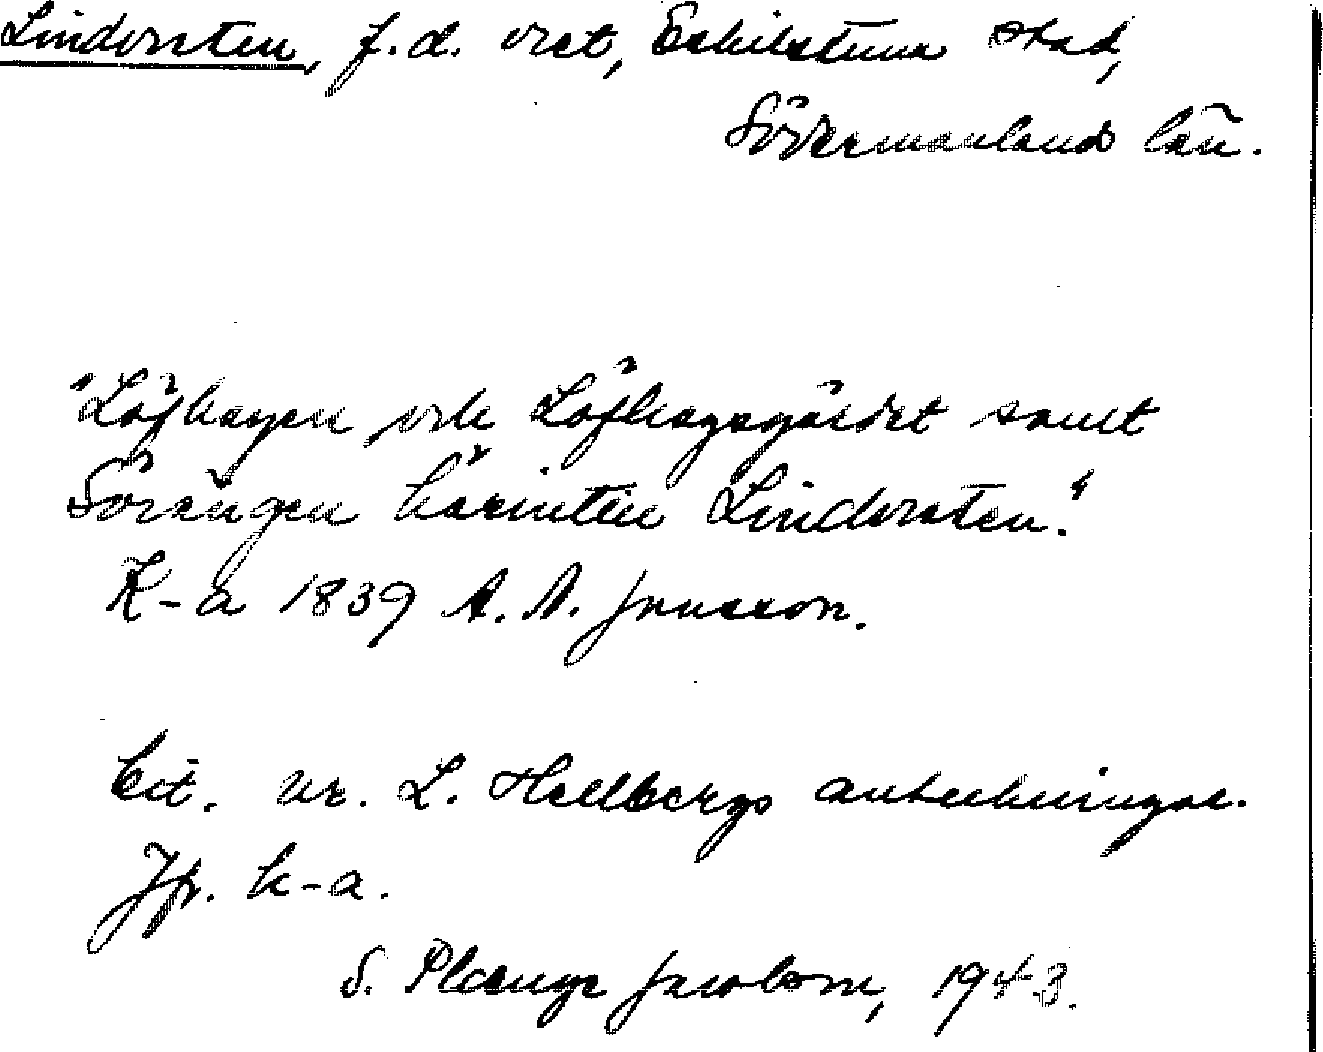 Lindersten, f.d. vret, Eskilstuna stad,
Södermanlands län.
"Löfhagen och Löfhagsgärdet samt
Sörängen härintill Lindersten."
K-a 1839 A. A. Jonsson.
Cit. ur. L. Hellbergs anteckningar.
Jfr. k-a.
S. Plænge Jacobson, 1943.